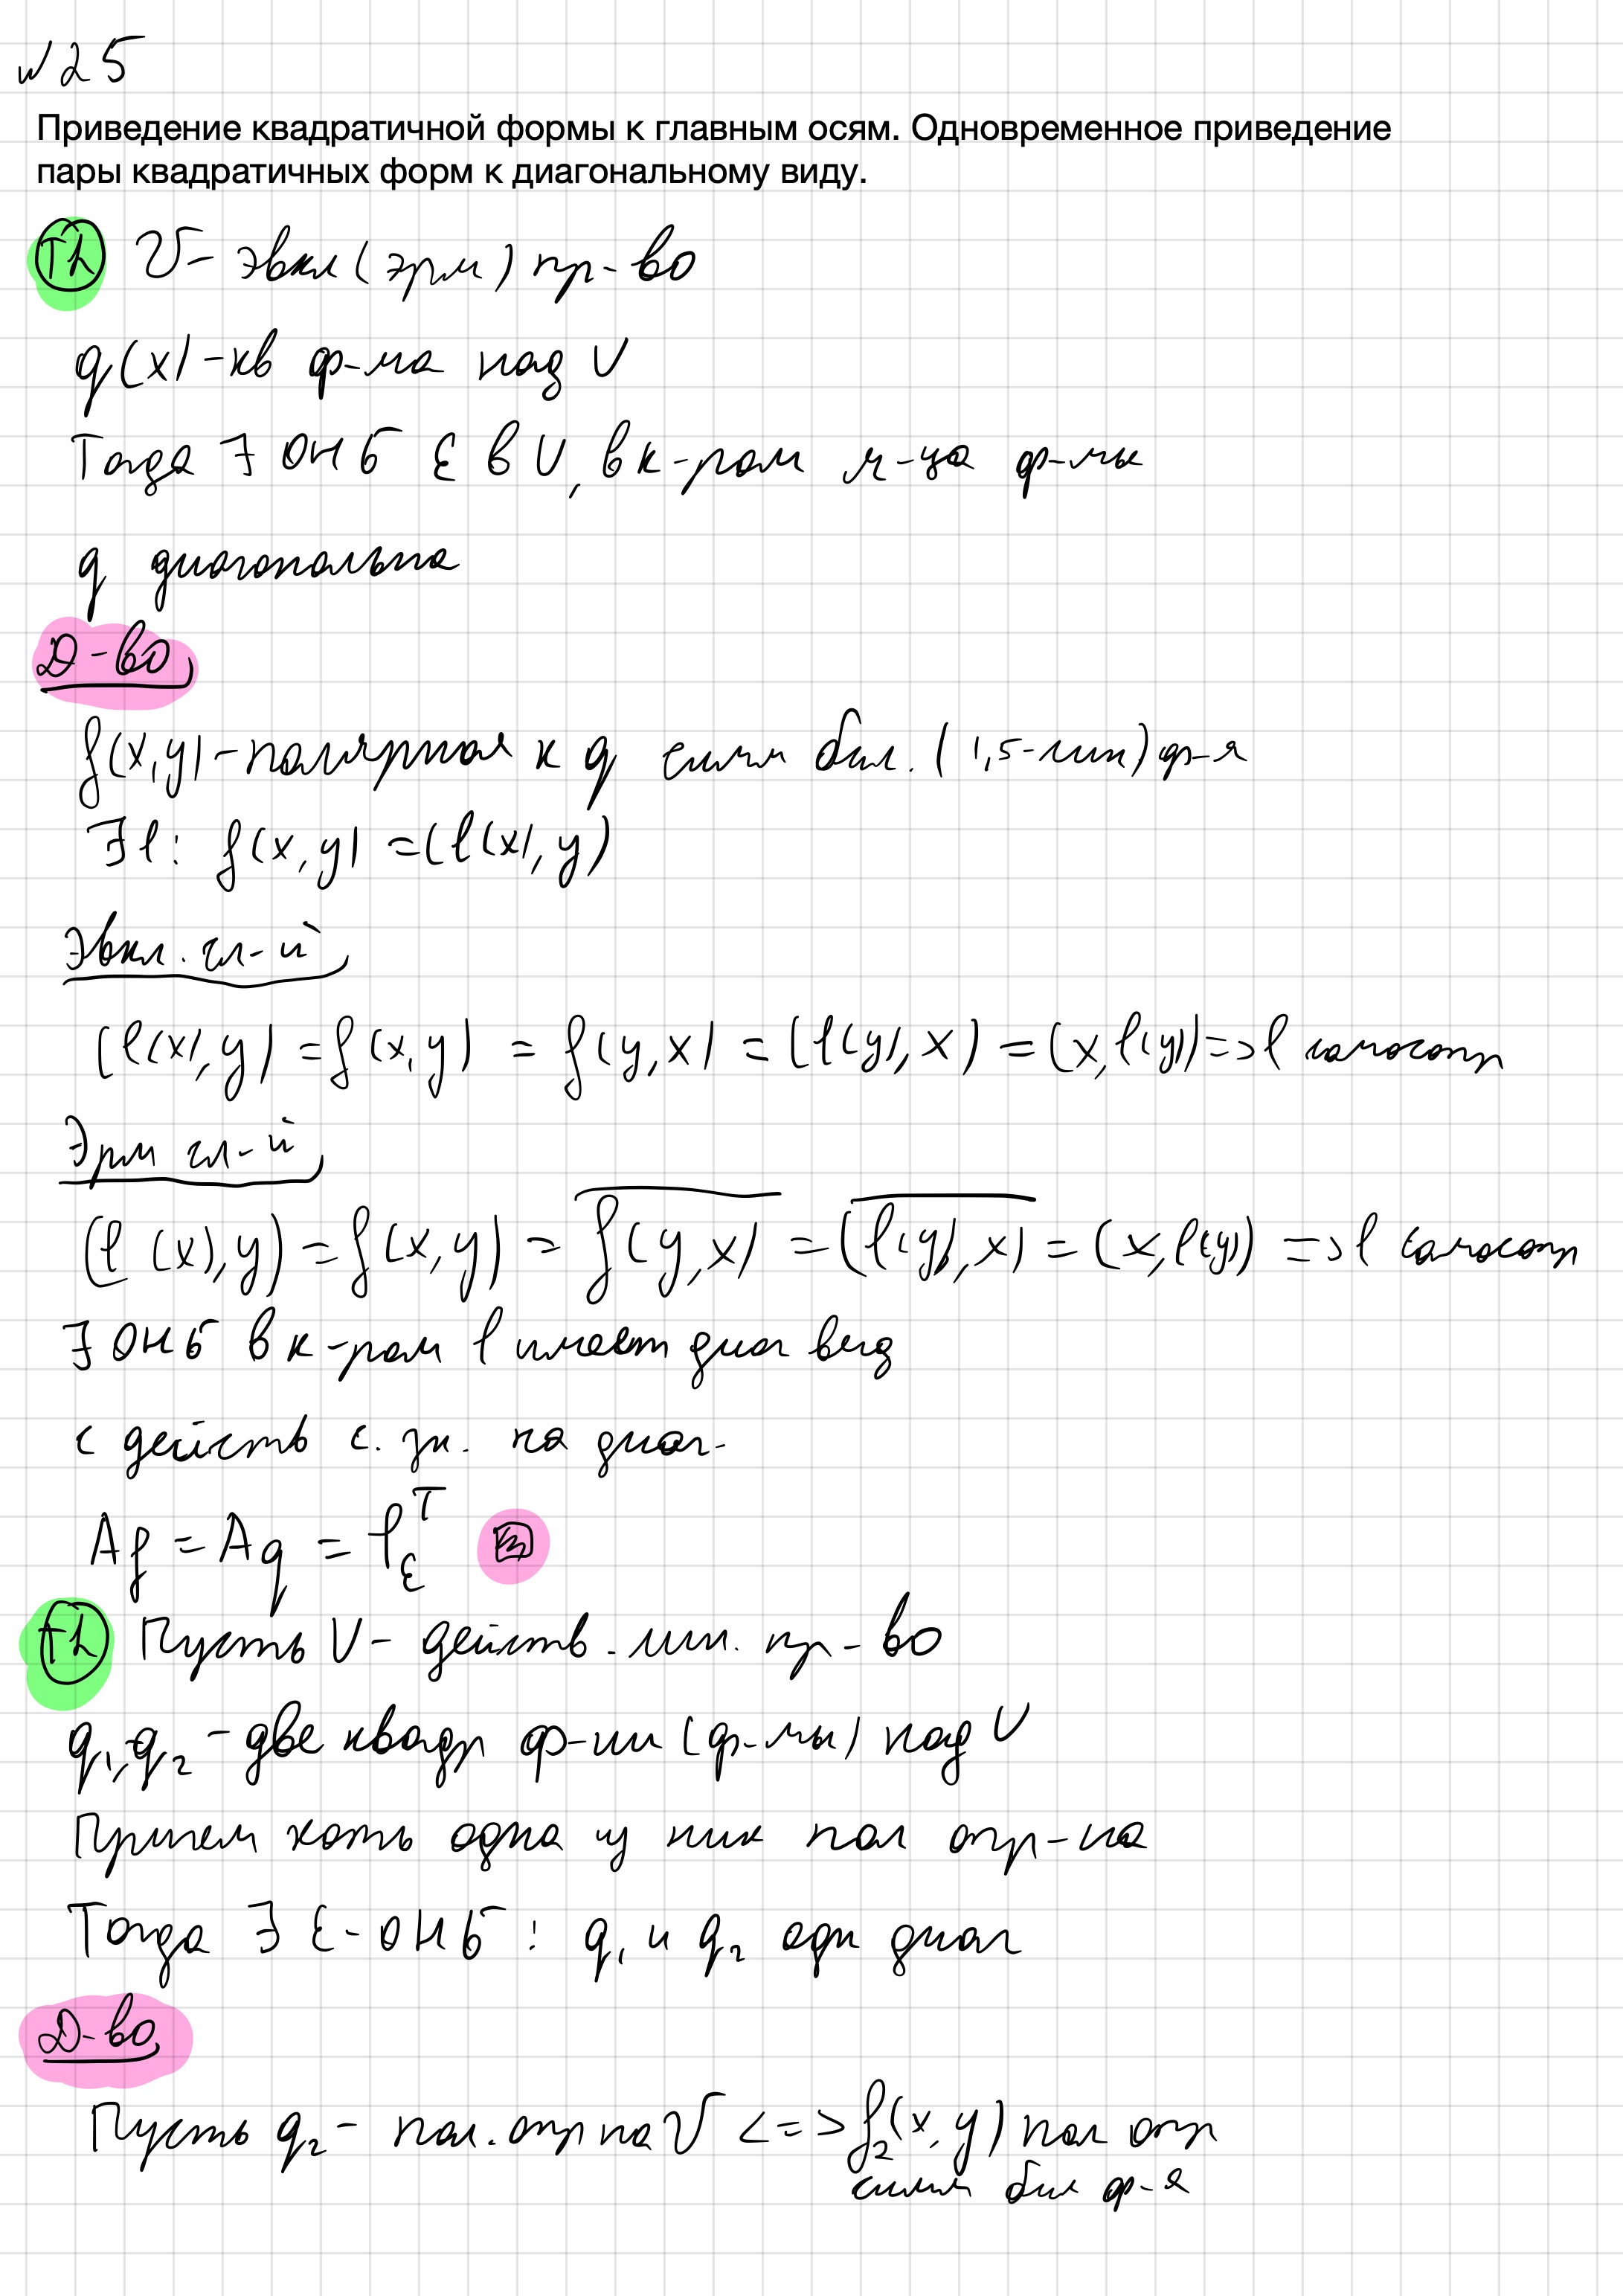 №25
Приведение квадратичной формы к главным осям. Одновременное приведение
пары квадратичных форм к диагональному виду.
Th V - эвкл (эрм) пр-во
q(x) - кв ф-ма над V
Тогда ∃ ОНБ ε в V, в к-ром м-ца ф-мы
q диагональна
Д-во
f(x,y) - полярная к q симм бил. (1,5-лин) ф-я
∃ φ: f(x,y) = (φ(x), y)
Эвкл. сл-й
(φ(x), y) = f(x,y) = f(y,x) = (φ(y), x) = (x, φ(y)) => φ самосопр
Эрм сл-й
(φ(x), y) = f(x,y) = \overline{f(y,x)} = \overline{(φ(y), x)} = (x, φ(y)) => φ самосопр
∃ ОНБ в к-ром φ имеет диаг вид
с действ с. зн. на диаг.
A_f = A_q = φ_ε^T
Th Пусть V - действ. лин. пр-во
q₁, q₂ - две квадр ф-ии (ф-мы) над V
Причем хоть одна из них пол опр-на
Тогда ∃ ε - ОНБ : q₁ и q₂ одн диаг
Д-во
Пусть q₂ - пол. опр на V <=> f₂(x,y) пол опр
симм бил ф-я